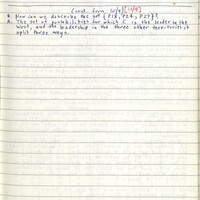 (cont. from 10/9) [10/9]
Q. How can we describe the set {P18, P26, P27}?
A. The set of possibilities for which C is the leader in the
West, and the leadership in the three other territories is
split three ways.